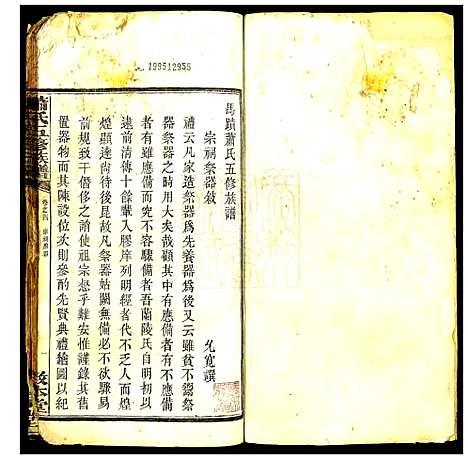 199512958
馬蹟蕭氏五修族譜
宗祠祭器敘
允寬譔
禮云凡家造祭器爲先養器爲後又云雖貧不鬻祭
器祭器之時用大矣哉顧其中有應備
者有雖應備而究不容驟備者吾蘭陵氏自明初以
逮前清傳十餘輩入膠庠列明經者代不乏人而煌
煌顯達尚待後昆故凡祭器姑闕無備必不欲驟易
前規致干僭侈之譏使祖宗怒乎難安惟謹錄其舊
置器物而其陳設位次則參酌先賢典禮繪圖以紀
蕭氏五修族譜
卷之四
一
敘本堂